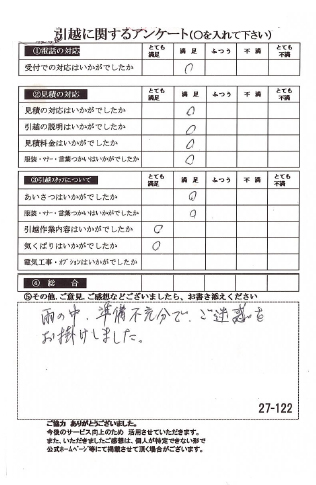 引越に関するアンケート(〇を入れて下さい)
①電話の対応 とても満足 満足 ふつう 不満 とても不満
受付での対応はいかがでしたか 〇
②見積の対応 とても満足 満足 ふつう 不満 とても不満
見積の対応はいかがでしたか 〇
引越の説明はいかがでしたか 〇
見積料金はいかがでしたか 〇
服装・マナー・言葉つかいはいかがでしたか 〇
③引越スタッフについて とても満足 満足 ふつう 不満 とても不満
あいさつはいかがでしたか 〇
服装・マナー・言葉つかいはいかがでしたか 〇
引越作業内容はいかがでしたか 〇
気くばりはいかがでしたか 〇
電気工事・オプションはいかがでしたか
④ 総合
⑤その他、ご意見、ご感想などございましたら、お書き添えください
雨の中、準備不充分で、ご迷惑を
お掛けしました。
27-122
ご協力 ありがとうございました。
今後のサービス向上のため 活用させていただきます。
また、いただきましたご感想は、個人が特定できない形で
公式ホームページ等にて掲載させて頂く場合がございます。